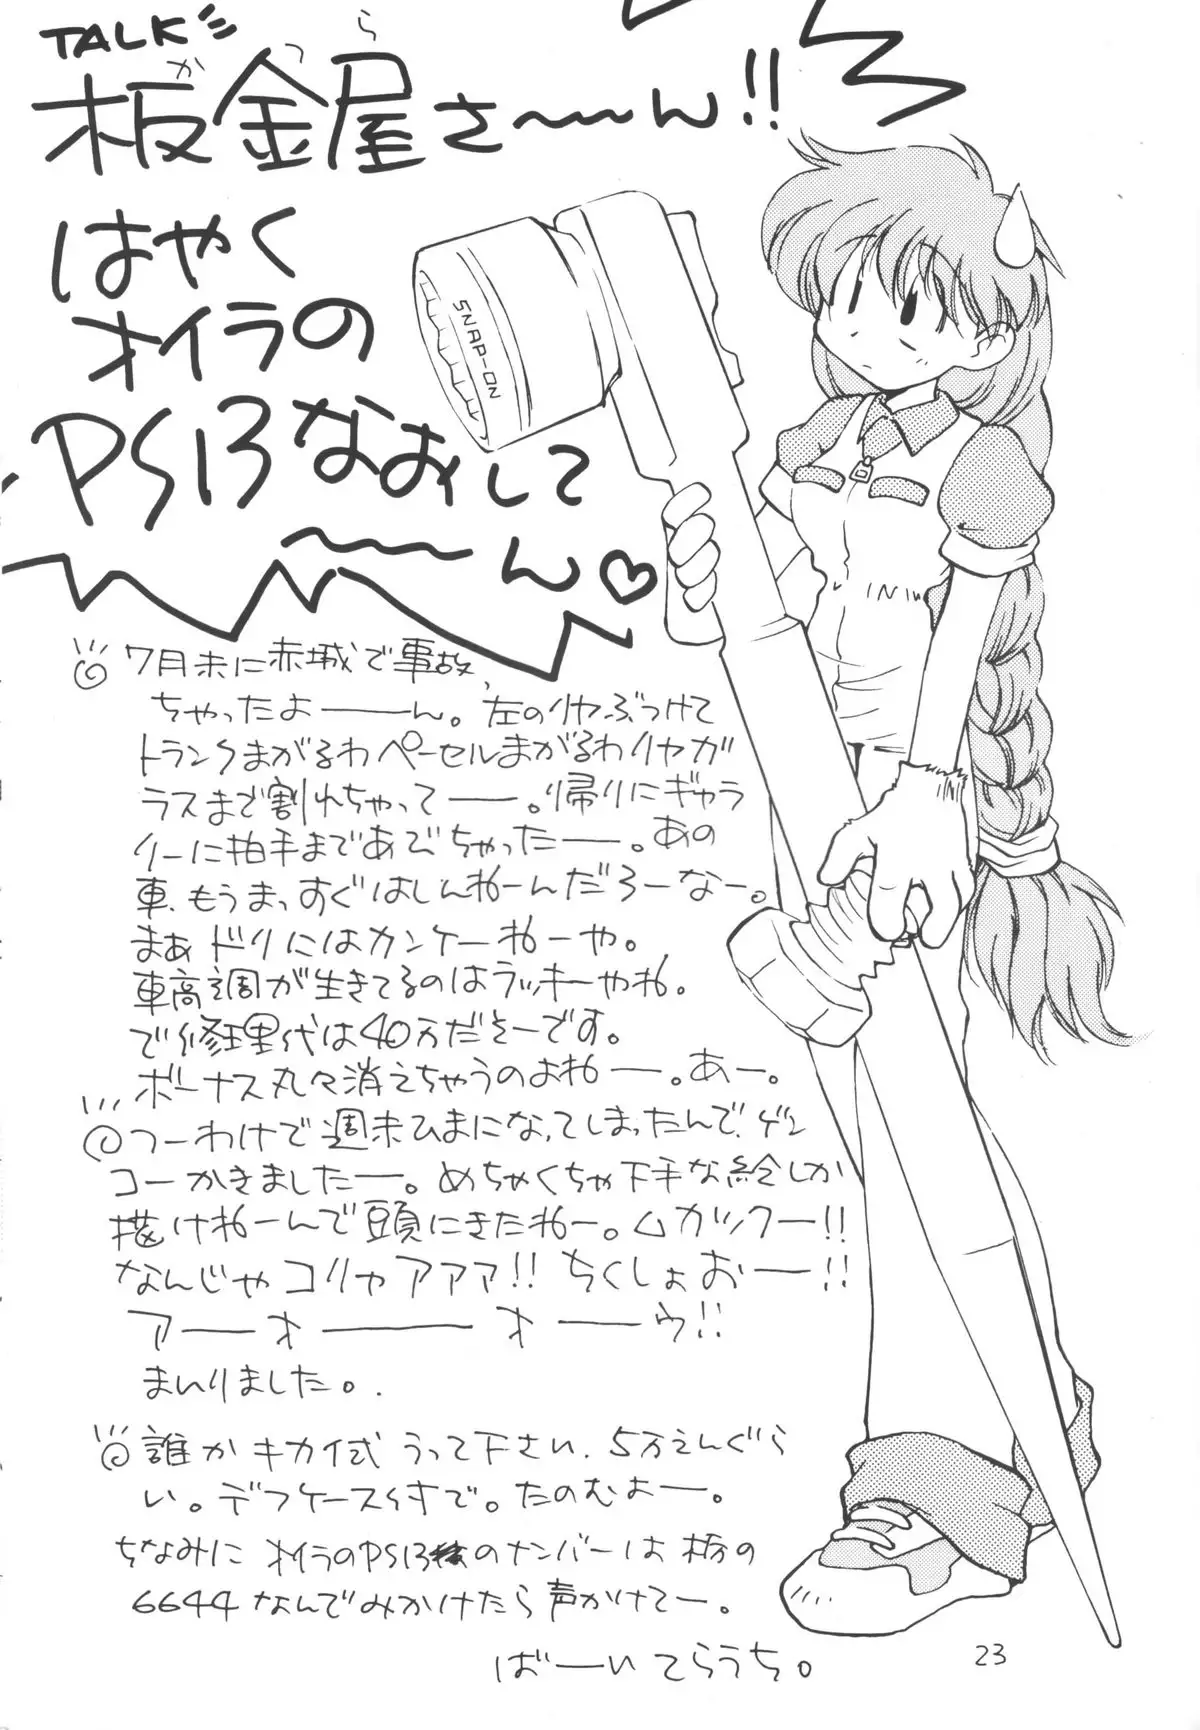 TALK
かつら
板金屋さ〜〜ん!!
はやく
オイラの
PS13なおして
〜〜ん♡
SNAP-ON
◎7月末に赤城で事故、
ちゃったよーーん。左のリヤぶつけて
トランクまがるわペーセルまがるわリヤガ
ラスまで割れちゃってーー。帰りにギャラ
リーに拍手まであびちゃったーー。あの
車、もうまっすぐはしんねーんだろーなー。
まぁドリにはカンケーねーや。
車高調が生きてるのはラッキーやね。
で修理代は40万だそーです。
ボーナス丸々消えちゃうのよねー。あー。
◎つーわけで週末ひまになってしまったんで、ゲン
コーかきましたー。めちゃくちゃ下手な絵しか
描けねーんで頭にきたねー。ムカツクー!!
なんじゃコリャアアァ!! ちくしょおー!!
アーーオーーーオーーウ!!
まいりました。.
◎誰かキカイ式うって下さい、5万えんぐら
い。デフケース付で。たのむよー。
ちなみにオイラのPS13のナンバーは栃の
6644なんでみかけたら声かけてー。
ばーいてらうち。
23